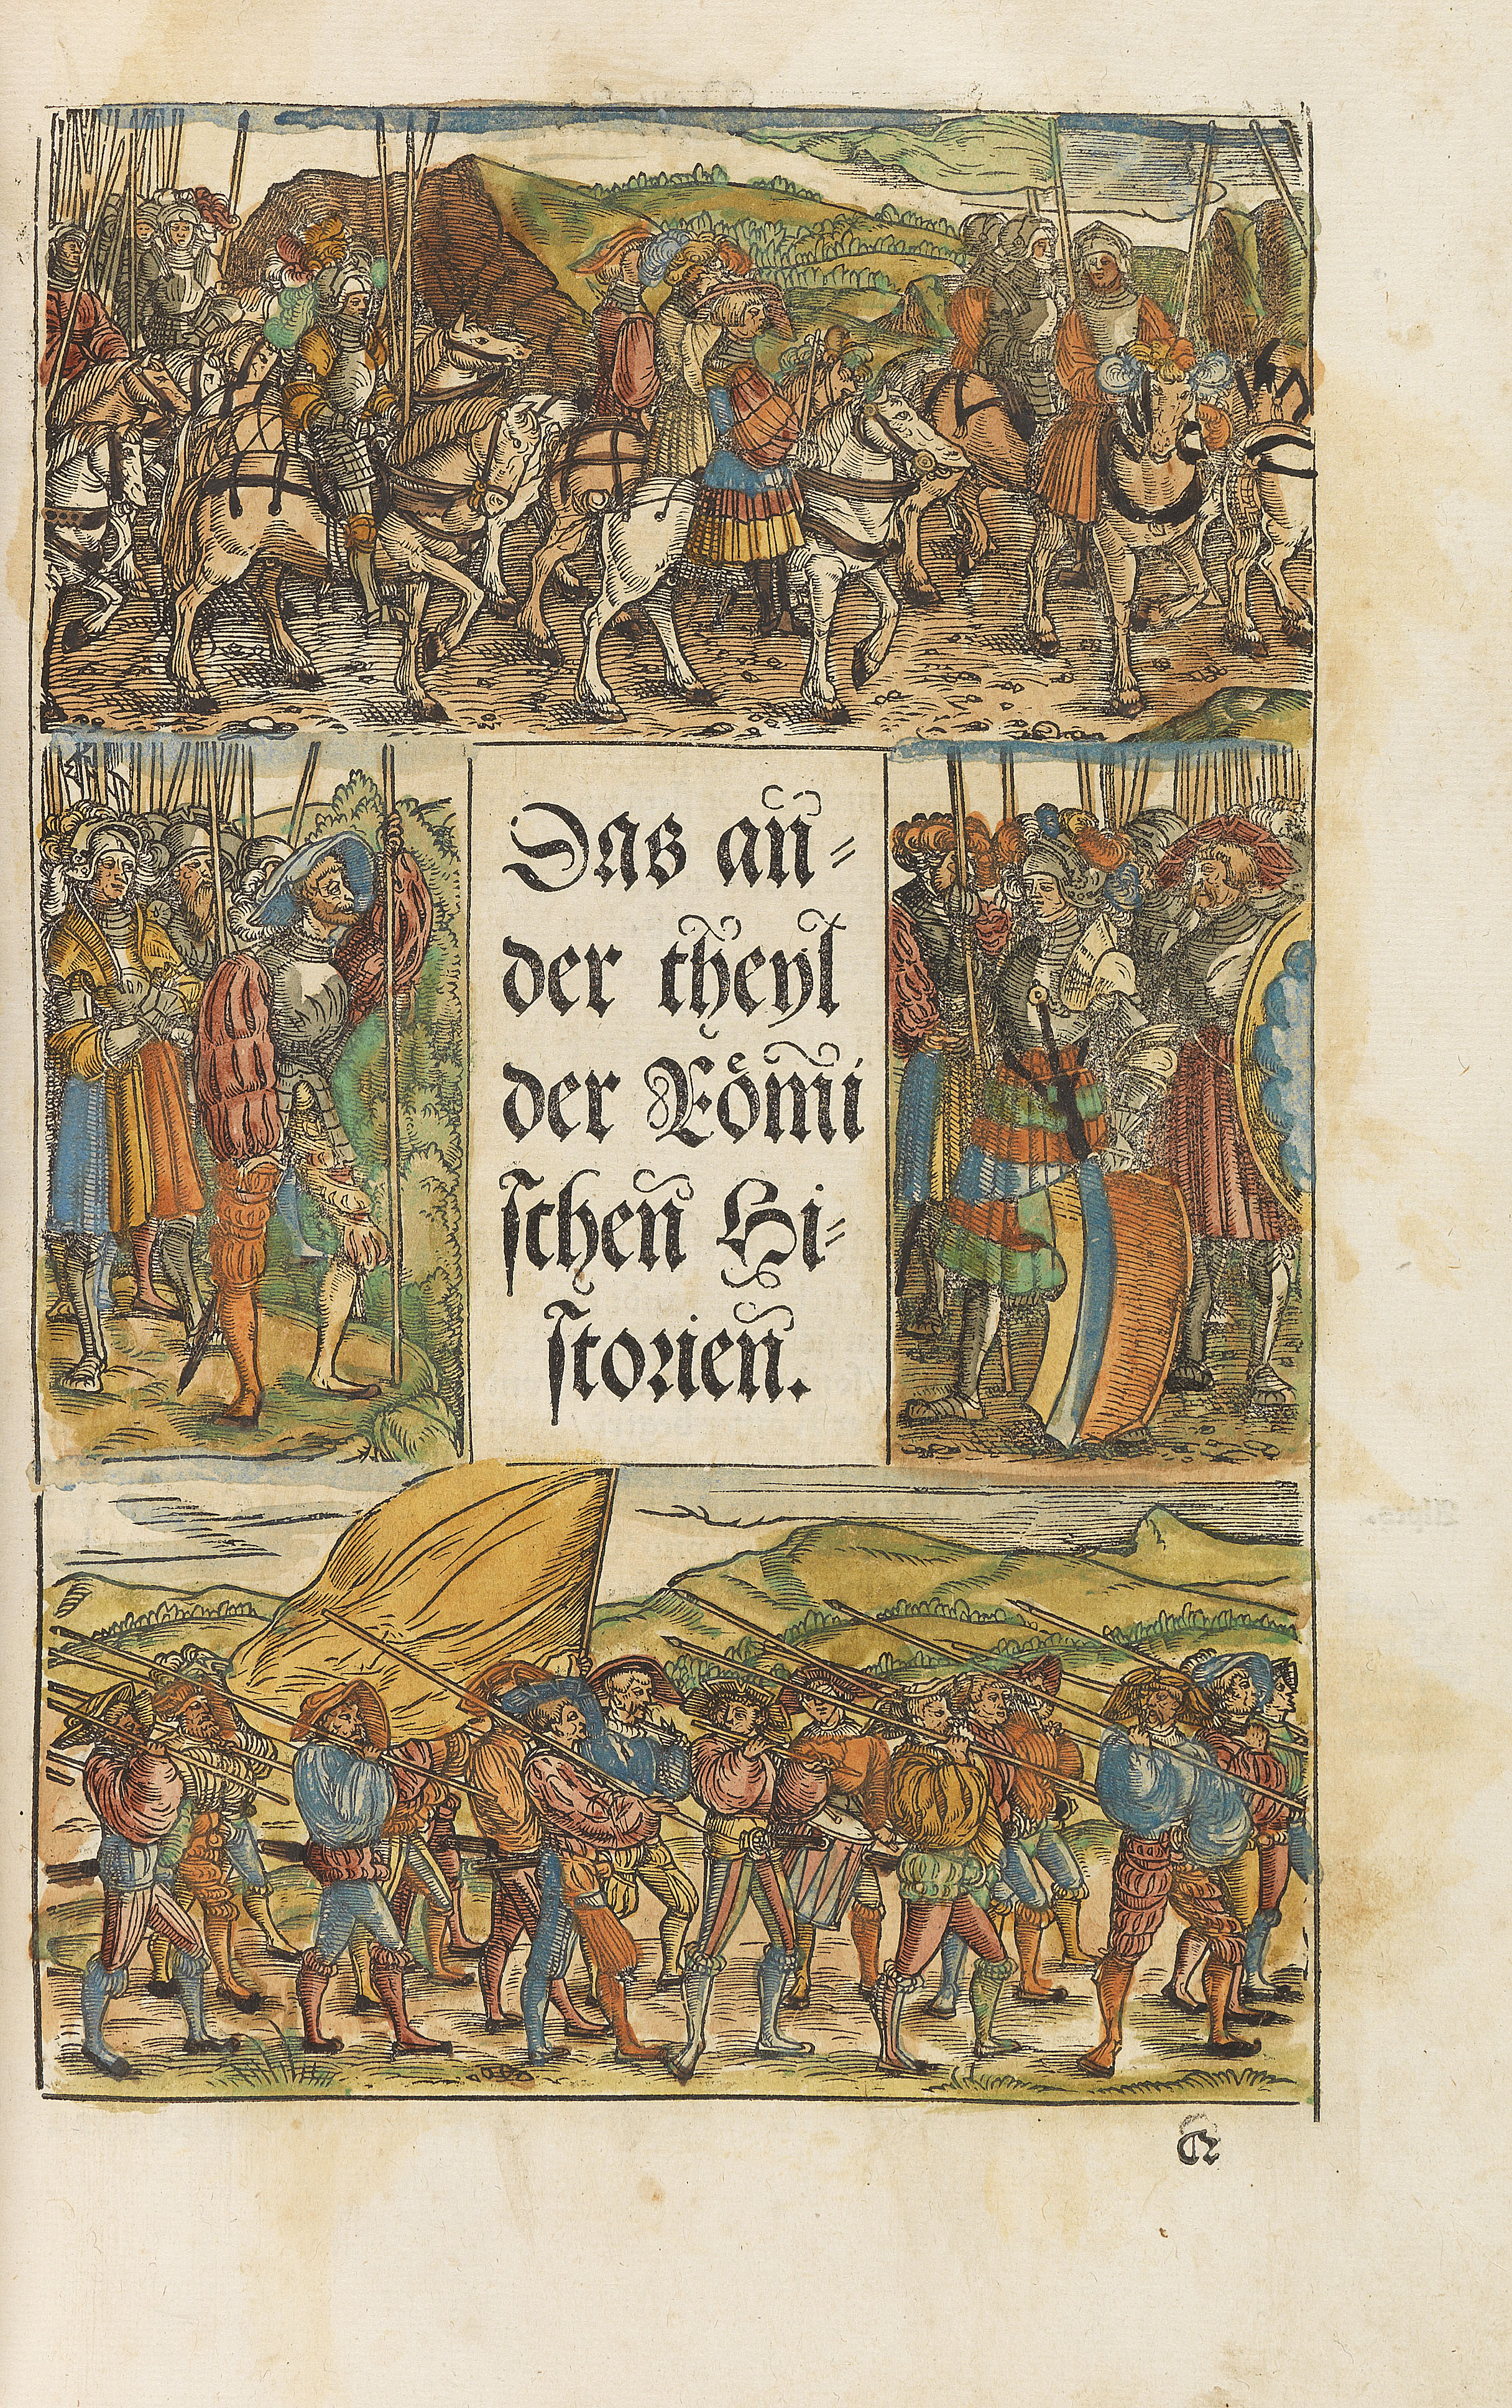 Das an⸗
der theyl
der Römi
ſchen Hi⸗
ſtorien.
A